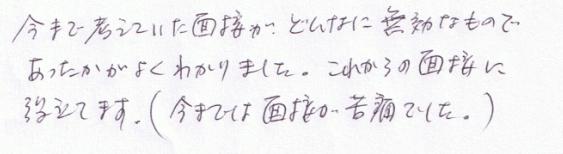 今まで考えていた面接が、どんなに無効なもので
あったかがよくわかりました。これからの面接に
活えてます。(今までは面接が苦痛でした。)